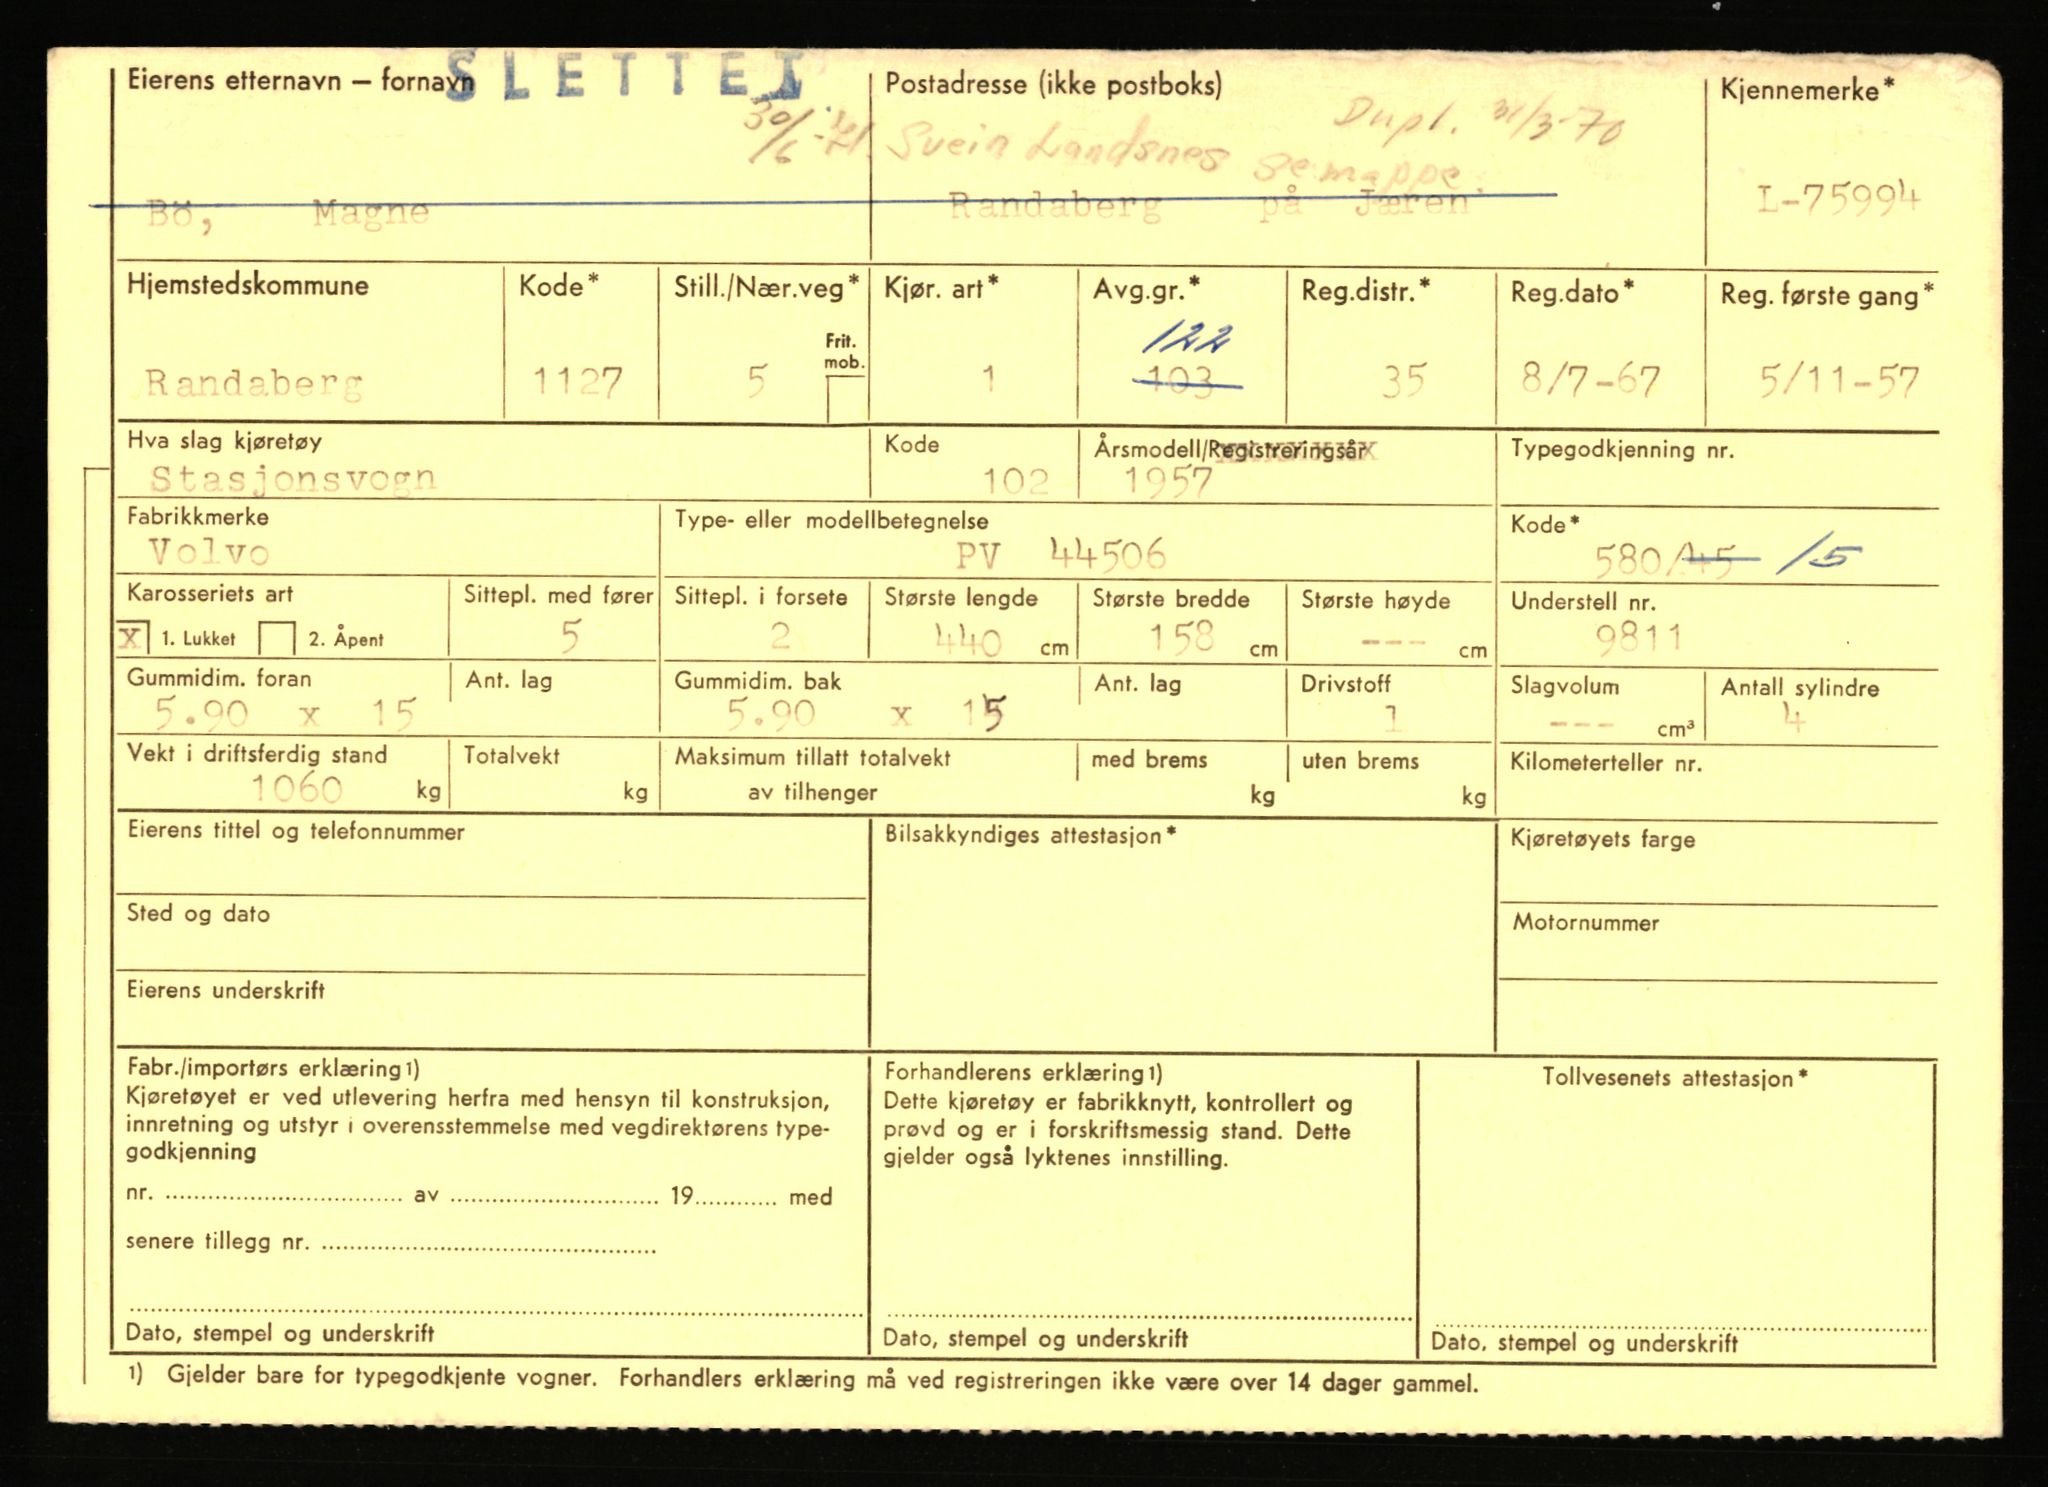 SLETTET
Eierens etternavn – fornavn
Postadresse (ikke postboks)
Kjennemerke*
30/6-71.
Dupl. 31/3-70
Svein Landsnes se mappe.
Bö, Magne
Randaberg på Jæren
L-75994
Hjemstedskommune Kode* Still./Nær.veg* Kjør. art* Avg.gr.* Reg.distr.* Reg.dato* Reg. første gang*
Frit. mob.
122
Randaberg 1127 5 1 103 35 8/7-67 5/11-57
Hva slag kjøretøy Kode Årsmodell/Registreringsår Typegodkjenning nr.
Stasjonsvogn 102 1957
Fabrikkmerke Type- eller modellbetegnelse Kode*
Volvo PV 44506 580/45 /5
Karosseriets art Sittepl. med fører Sittepl. i forsete Største lengde Største bredde Største høyde Understell nr.
X 1. Lukket 2. Åpent 5 2 440 cm 158 cm --- cm 9811
Gummidim. foran Ant. lag Gummidim. bak Ant. lag Drivstoff Slagvolum Antall sylindre
5.90 x 15 5.90 x 15 1 --- cm³ 4
Vekt i driftsferdig stand Totalvekt Maksimum tillatt totalvekt med brems uten brems Kilometerteller nr.
1060 kg kg av tilhenger kg kg
Eierens tittel og telefonnummer Bilsakkyndiges attestasjon* Kjøretøyets farge
Sted og dato Motornummer
Eierens underskrift
Fabr./importørs erklæring 1)
Kjøretøyet er ved utlevering herfra med hensyn til konstruksjon,
innretning og utstyr i overensstemmelse med vegdirektørens type-
godkjenning
nr. ................ av ................ 19........ med
senere tillegg nr. ................
Dato, stempel og underskrift
Forhandlerens erklæring 1)
Dette kjøretøy er fabrikknytt, kontrollert og
prøvd og er i forskriftsmessig stand. Dette
gjelder også lyktenes innstilling.
Dato, stempel og underskrift
Tollvesenets attestasjon*
Dato, stempel og underskrift
1) Gjelder bare for typegodkjente vogner. Forhandlers erklæring må ved registreringen ikke være over 14 dager gammel.